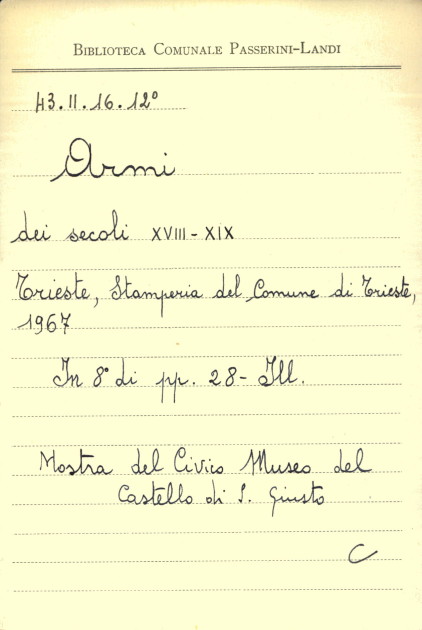 BIBLIOTECA COMUNALE PASSERINI-LANDI
43.II.16.12°
Armi
dei secoli XVIII-XIX
Trieste, Stamperia del Comune di Trieste,
1967
In 8° di pp. 28- Ill.
Mostra del Civico Museo del
Castello di S. Giusto
C